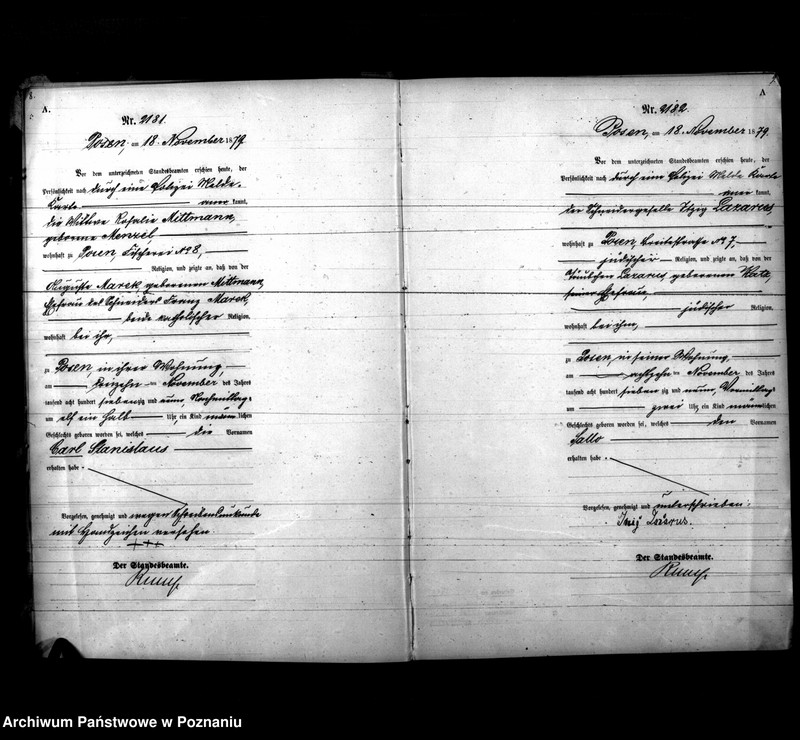 A.
Nr. 2181.
Posen, am 18. November 1879.
Vor dem unterzeichneten Standesbeamten erschien heute, der
Persönlichkeit nach durch eine Polizei Melde-
Karte kannt,
die Wittwe Rosalie Mittmann,
geborene Menzel
wohnhaft zu Posen Fischerei No 8,
Religion, und zeigte an, daß von der
Auguste Marek, geborenen Mittmann,
Ehefrau des Schneiders Franz Marek,
beide katholischer Religion,
wohnhaft bei ihr,
zu Posen, in ihrer Wohnung,
am November des Jahres
tausend acht hundert siebenzig und neun Nachmittags
um elf ein halb Uhr, ein Kind männlichen
Geschlechts geboren worden sei, welches die Vornamen
Carl Stanislaus
erhalten habe.
Vorgelesen, genehmigt und wegen Schreibensunkunde
mit Handzeichen versehen.
+++
Der Standesbeamte.
A
Nr. 2182.
Posen, am 18. November 1879.
Vor dem unterzeichneten Standesbeamten erschien heute, der
Persönlichkeit nach durch eine Polizei Melde Karte
kannt,
der Schneidergeselle Itzig Lazarus,
wohnhaft zu Posen, Breitestraße No 7,
jüdischer Religion, und zeigte an, daß von der
Täubchen Lazarus, geborenen
seiner Ehefrau,
jüdischer Religion,
wohnhaft bei ihm,
zu Posen, in seiner Wohnung,
am achtzehn ten November des Jahres
tausend acht hundert sieben zig und neun, Vormittags
um zwei Uhr, ein Kind männlichen
Geschlechts geboren worden sei, welches den Vornamen
Sallo
erhalten habe.
Vorgelesen, genehmigt und unterschrieben:
Lazarus.
Der Standesbeamte.
Archiwum Państwowe w Poznaniu